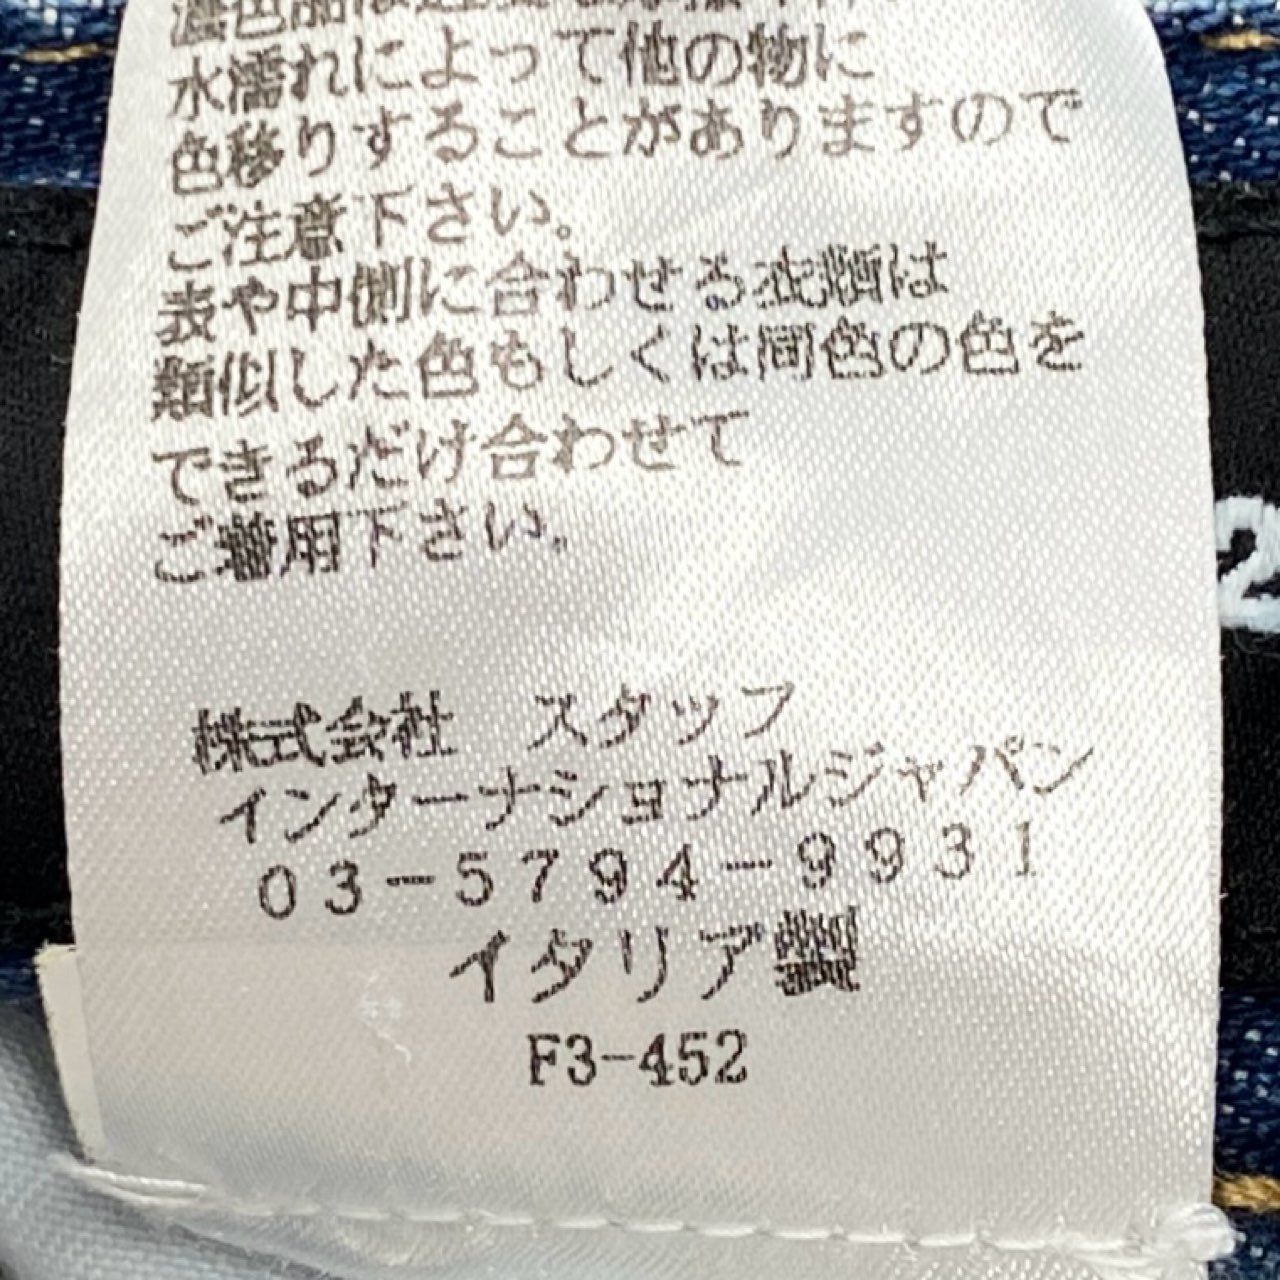 濃色品は
水濡れによって他の物に
色移りすることがありますので
ご注意下さい。
表や中側に合わせる衣類は
類似した色もしくは同色の色を
できるだけ合わせて
ご着用下さい。
株式会社 スタッフ
インターナショナルジャパン
03-5794-9931
イタリア製
F3-452
2